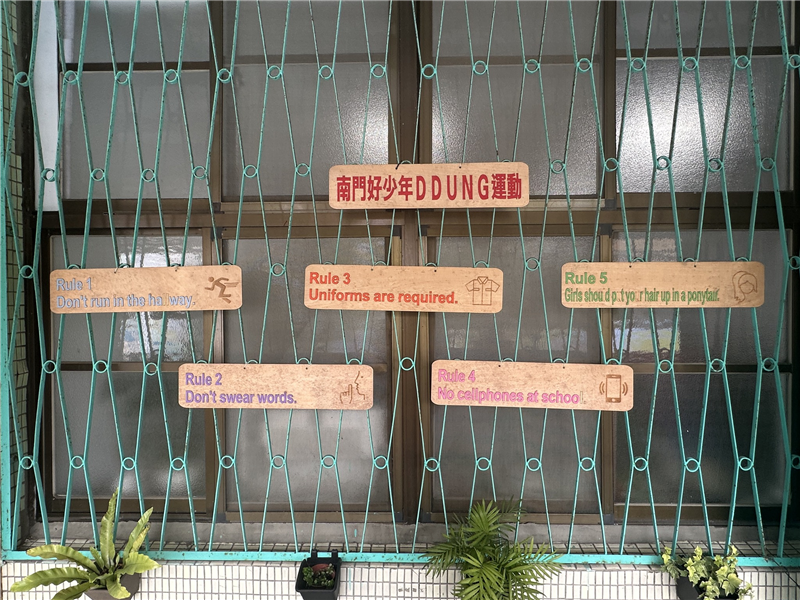 南門好少年DDUNG運動
Rule 1
Don't run in the hallway.
Rule 3
Uniforms are required.
Rule 5
Girls should put your hair up in a ponytail.
Rule 2
Don't swear words.
Rule 4
No cellphones at school.